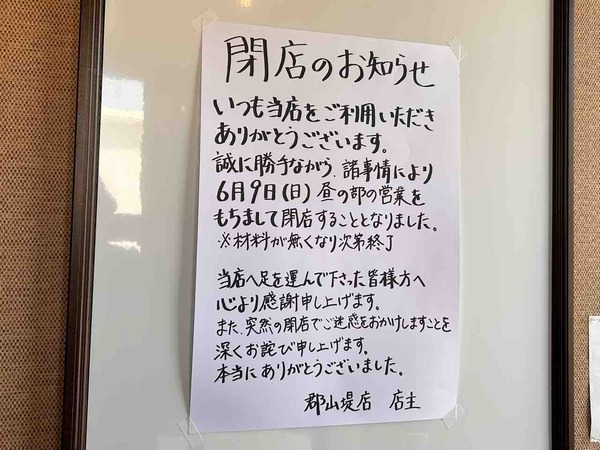 閉店のお知らせ
いつも当店をご利用いただき
ありがとうございます。
誠に勝手ながら、諸事情により
6月9日(日)昼の部の営業を
もちまして閉店することとなりました。
※材料が無くなり次第終了
当店へ足を運んで下さった皆様方へ
心より感謝申し上げます。
また、突然の閉店でご迷惑をおかけしますことを
深くお詫び申し上げます。
本当にありがとうございました。
郡山堤店 店主